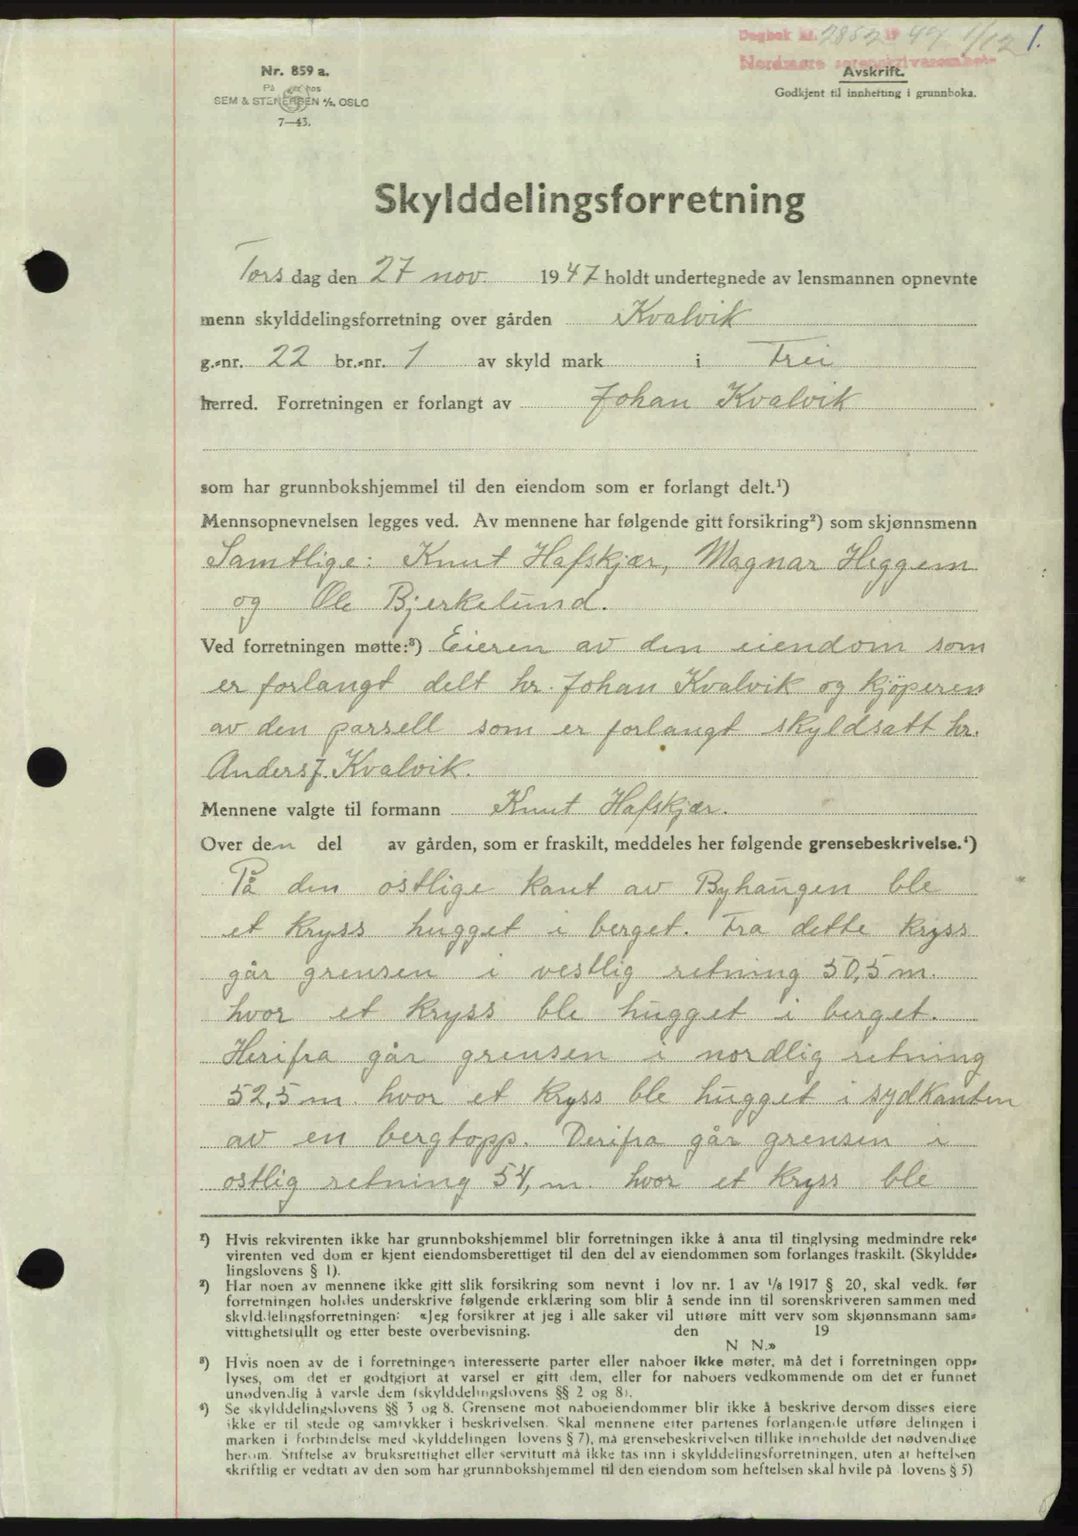 Dagbok nr. 2852 1947 1/12 1.
Nordmøre sorenskriverembete
Nr. 859 a.
På hos
SEM & STENERSEN A/S. OSLO
7—43.
Avskrift.
Godkjent til innhefting i grunnboka.
Skylddelingsforretning
Torsdag den 27 nov. 1947 holdt undertegnede av lensmannen opnevnte
menn skylddelingsforretning over gården Kvalvik
g.-nr. 22 br.-nr. 1 av skyld mark i Frei
herred. Forretningen er forlangt av Johan Kvalvik
som har grunnbokshjemmel til den eiendom som er forlangt delt.¹)
Mennsopnevnelsen legges ved. Av mennene har følgende gitt forsikring²) som skjønnsmenn
Samtlige: Knut Hafskjær, Magnar Heggem
og Ole Bjerkelund.
Ved forretningen møtte:³) Eieren av den eiendom som
er forlangt delt hr. Johan Kvalvik og kjöperen
av den parsell som er forlangt skyldsatt hr.
Anders J. Kvalvik.
Mennene valgte til formann Knut Hafskjær.
Over den del av gården, som er fraskilt, meddeles her følgende grensebeskrivelse.⁴)
På den ostlige kant av Byhaugen ble
et kryss hugget i berget. Fra dette kryss
går grensen i vestlig retning 50,5 m.
hvor et kryss ble hugget i berget.
Herifra går grensen i nordlig retning
52,5 m. hvor et kryss ble hugget i sydkanten
av en bergtopp. Derifra går grensen i
ostlig retning 54, m. hvor et kryss ble
¹) Hvis rekvirenten ikke har grunnbokshjemmel blir forretningen ikke å anta til tinglysing medmindre rek-
virenten ved dom er kjent eiendomsberettiget til den del av eiendommen som forlanges fraskilt. (Skyldde-
lingslovens § 1).
²) Har noen av mennene ikke gitt slik forsikring som nevnt i lov nr. 1 av 1/6 1917 § 20, skal vedk. før
forretningen holdes underskrive følgende erklæring som blir å sende inn til sorenskriveren sammen med
skylddelingsforretningen: «Jeg forsikrer at jeg i alle saker vil utføre mitt verv som skjønnsmann sam-
vittighetsfullt og etter beste overbevisning. den 19
N N.»
³) Hvis noen av de i forretningen interesserte parter eller naboer ikke møter, må det i forretningen opp-
lyses, om det er godtgjort at varsel er gitt dem, eller for naboers vedkommende om det er funnet
unødvendig å varsle dem (skylddelingslovens §§ 2 og 8).
⁴) Se skylddelingslovens §§ 3 og 8. Grensene mot naboeiendommer blir ikke å beskrive dersom disses eiere
ikke er til stede og samtykker i beskrivelsen. Skal mennene etter partenes forlangende utføre delingen i
marken i forbindelse med skylddelingen (lovens § 7), må grensebeskrivelsen tillike inneholde det nødvendige
herom. Stiftelse av bruksrettighet eller servitutt må ikke tas inn i skylddelingsforretningen, uten at heftelsen
skriftlig er vedtatt av den som har grunnbokshjemmel til den eiendom som heftelsen skal hvile på (lovens § 5)